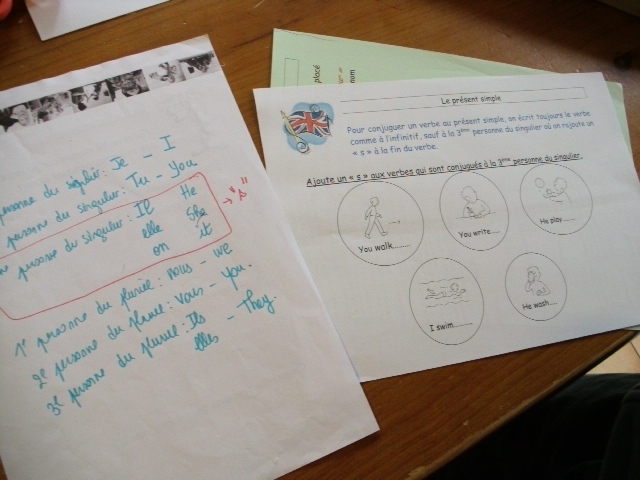 personne du singulier: Je - I
personne du singulier: Tu - You
personne du singulier: Il He → "s"
elle She
on it
1e personne du pluriel: nous - we
2e personne du pluriel: Vous - You.
3e personne du pluriel: Ils - They.
elles
placé
nom
Le présent simple
Pour conjuguer un verbe au présent simple, on écrit toujours le verbe
comme à l'infinitif, sauf à la 3ème personne du singulier où on rajoute un
« s » à la fin du verbe.
Ajoute un « s » aux verbes qui sont conjugués à la 3ème personne du singulier.
You walk........
You write.....
He play......
I swim........
He wash.....